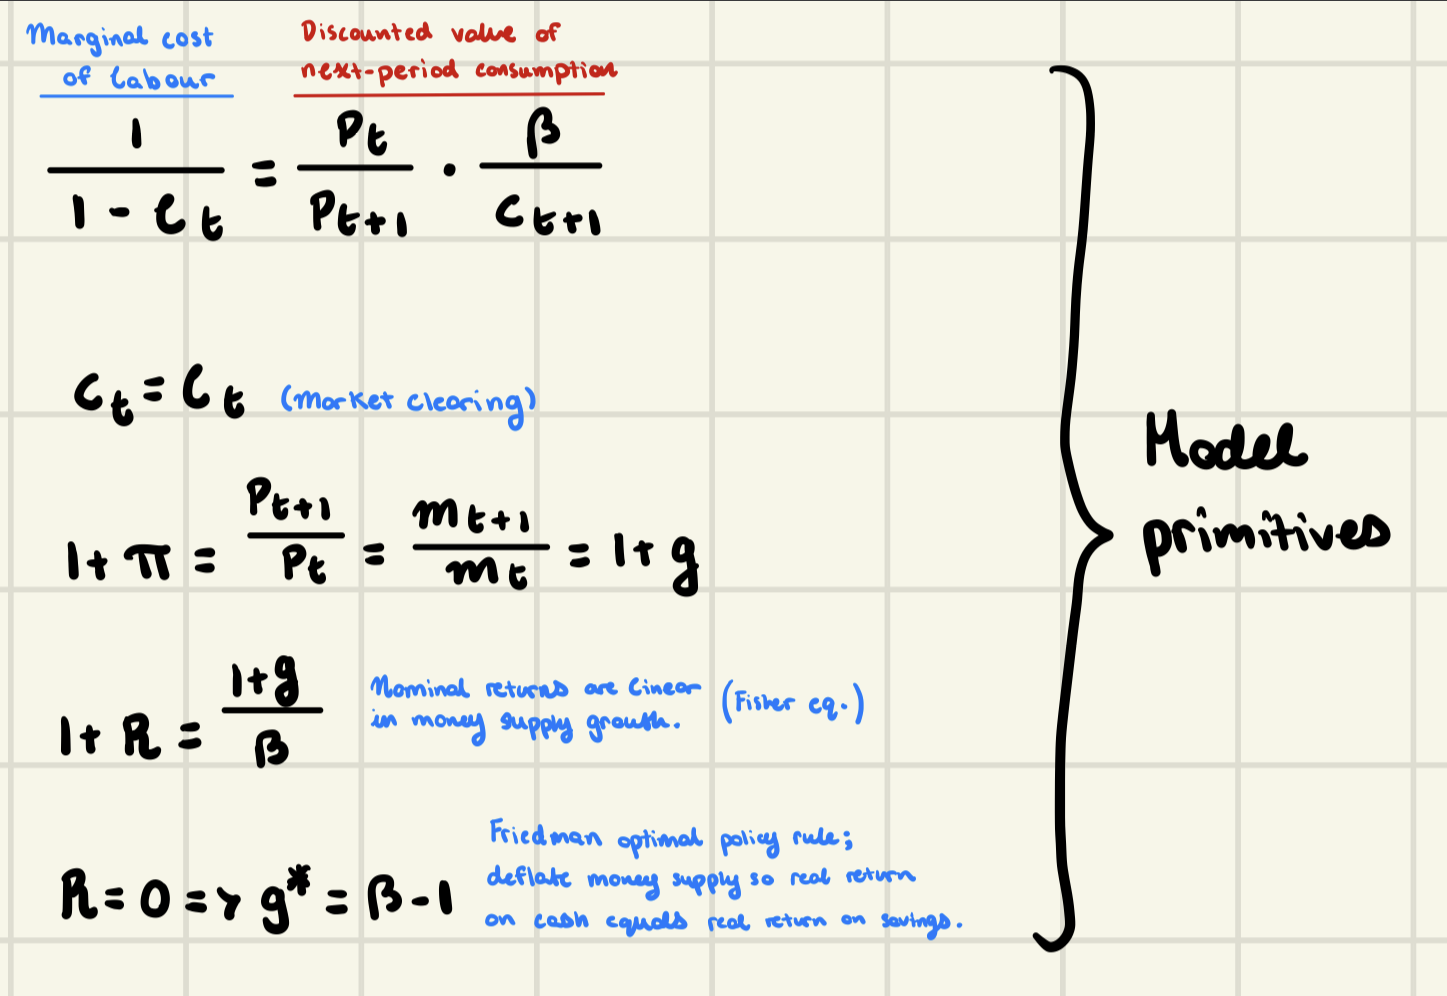 Marginal cost
of labour
Discounted value of
next-period consumption
1 / (1 - ℓ_t) = P_t / P_{t+1} · β / C_{t+1}
C_t = ℓ_t (Market clearing)
1 + π = P_{t+1} / P_t = m_{t+1} / m_t = 1 + g
1 + R = (1 + g) / β
Nominal returns are linear
in money supply growth.
(Fisher eq.)
R = 0 => g* = β - 1
Friedman optimal policy rule;
deflate money supply so real return
on cash equals real return on savings.
Model
primitives